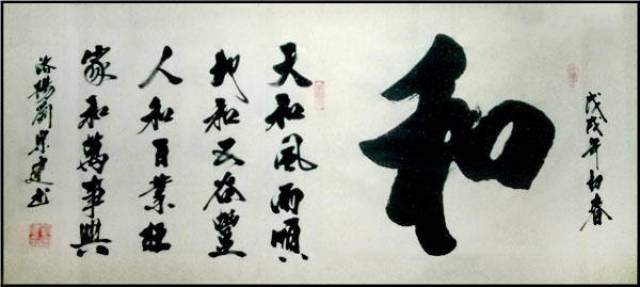 戊戌年初春
和
天和風雨順
地和五谷豐
人和百業旺
家和萬事興
洛陽劉宗建书